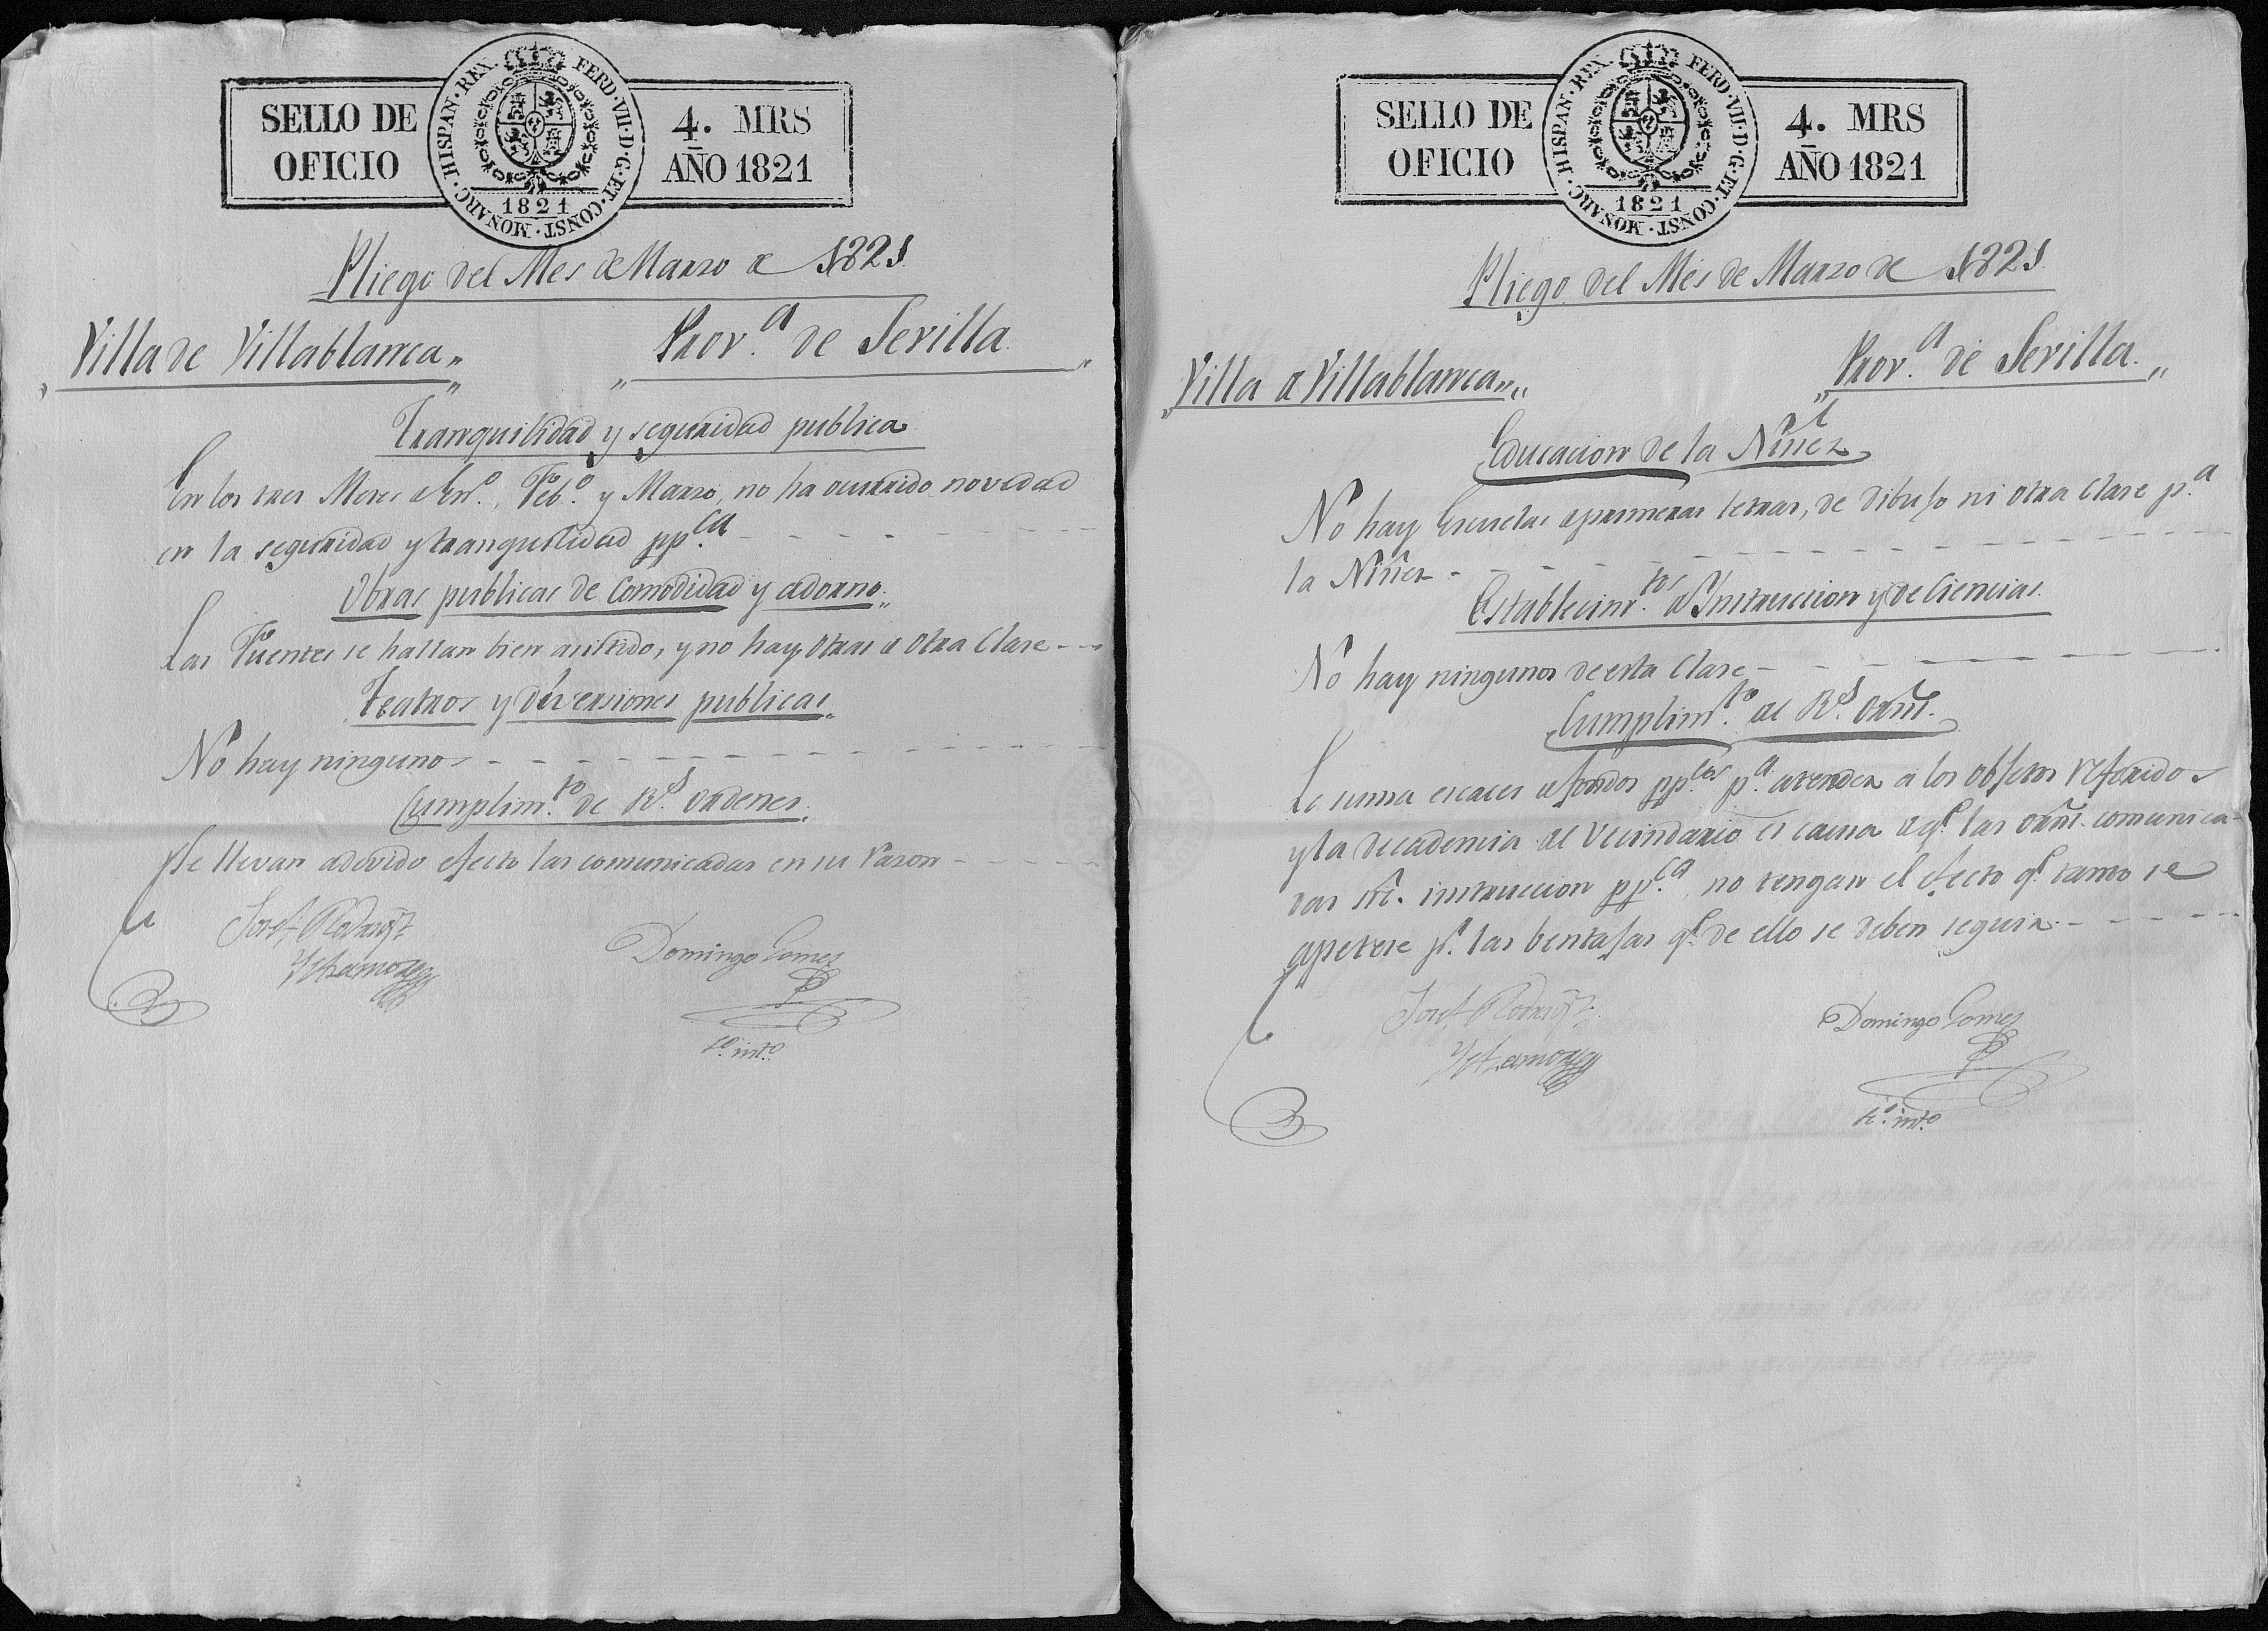 SELLO DE
OFICIO
HISPAN. REX. FERD. VII. D. G. ET. CONST. MONARC.
1821
4. MRS
AÑO 1821
Pliego del Mes de Marzo de 1821
Villa de Villablanca
Prov.ª de Sevilla
Tranquilidad y seguridad publica
En los tres Meses de En.º, Feb.º y Marzo, no ha ocurrido novedad
en la seguridad y tranquilidad pp.ca
Obras publicas de Comodidad y adorno
Las Fuentes se hallan bien asistido, y no hay otras de otra Clase
Teatros y diversiones publicas
No hay ningunos
Cumplim.to de R.s ordenes
Se llevan a devido efecto las comunicadas en su razon
Josef Rodrig.z
Domingo Gomez
s.º int.º
SELLO DE
OFICIO
HISPAN. REX. FERD. VII. D. G. ET. CONST. MONARC.
1821
4. MRS
AÑO 1821
Pliego del Mes de Marzo de 1821
Villa de Villablanca
Prov.ª de Sevilla
Educacion de la Niñez
No hay Escuelas de primeras letras, de dibujo ni otra Clase p.ª
la Niñez
Establecim.tos de Instruccion y de Ciencias
No hay ningunos de esta Clase
Cumplim.to de R.s orñs.
La suma escases de fondos pp.cos p.ª atender a los objetos referidos
y la decadencia del Vecindario es causa de q.e las orñs. comunica-
das sre. instruccion pp.ca, no tengan el efecto q.e tanto se
apetese p.r las bentajas q.e de ello se deben seguir
Josef Rodrig.z
Domingo Gomez
s.º int.º